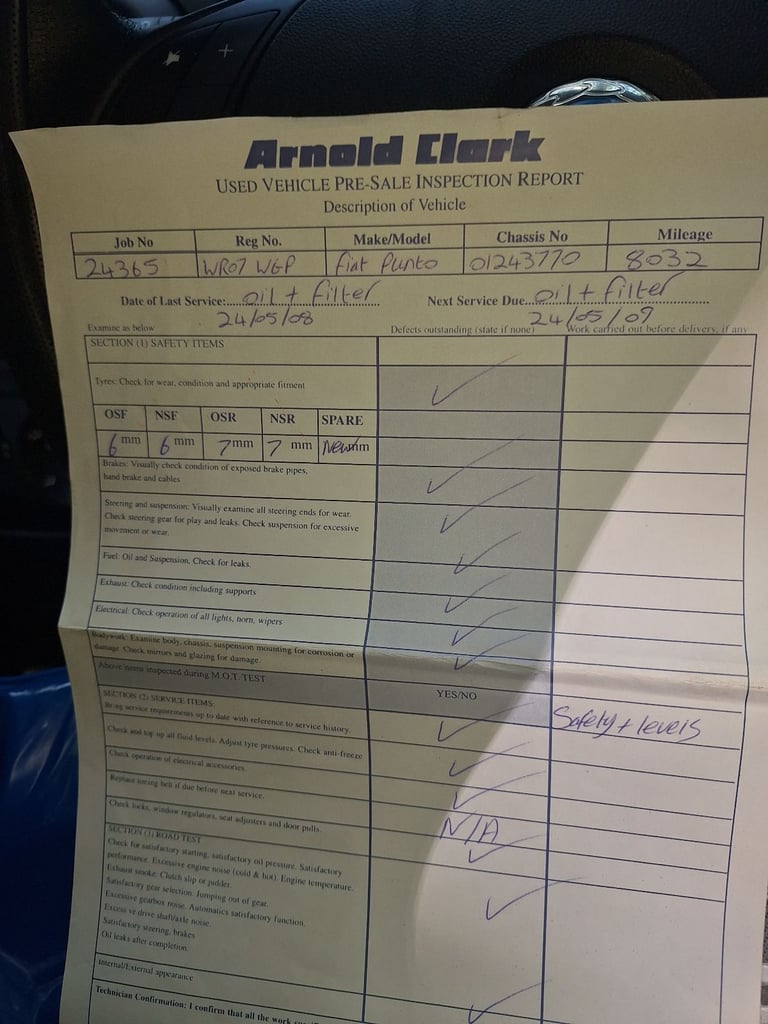 +
Arnold Clark
USED VEHICLE PRE-SALE INSPECTION REPORT
Description of Vehicle
Job No Reg No. Make/Model Chassis No Mileage
24365 WR07 WGP Fiat Punto 01243770 8032
Date of Last Service: oil + filter Next Service Due oil + filter
24/05/08 24/05/09
Examine as below Defects outstanding (state if none) Work carried out before delivery, if any
SECTION (1) SAFETY ITEMS
Tyres: Check for wear, condition and appropriate fitment
OSF NSF OSR NSR SPARE
6 mm 6 mm 7 mm 7 mm New mm
Brakes: Visually check condition of exposed brake pipes,
hand brake and cables
Steering and suspension: Visually examine all steering ends for wear.
Check steering gear for play and leaks. Check suspension for excessive
movement or wear.
Fuel: Oil and Suspension, Check for leaks.
Exhaust: Check condition including supports
Electrical: Check operation of all lights, horn, wipers
Bodywork: Examine body, chassis, suspension mounting for corrosion or
damage. Check mirrors and glazing for damage.
Above items inspected during M.O.T. TEST YES/NO
SECTION (2) SERVICE ITEMS:
Bring service requirements up to date with reference to service history. Safety + levels
Check and top up all fluid levels. Adjust tyre pressures. Check anti-freeze
Check operation of electrical accessories.
Replace timing belt if due before next service. N/A
Check locks, window regulators, seat adjusters and door pulls.
SECTION (3) ROAD TEST
Check for satisfactory starting, satisfactory oil pressure. Satisfactory
performance. Excessive engine noise (cold & hot). Engine temperature.
Exhaust smoke. Clutch slip or judder.
Satisfactory gear selection. Jumping out of gear.
Excessive gearbox noise. Automatics satisfactory function.
Excessive drive shaft/axle noise.
Satisfactory steering, brakes
Oil leaks after completion.
Internal/External appearance
Technician Confirmation: I confirm that all the work